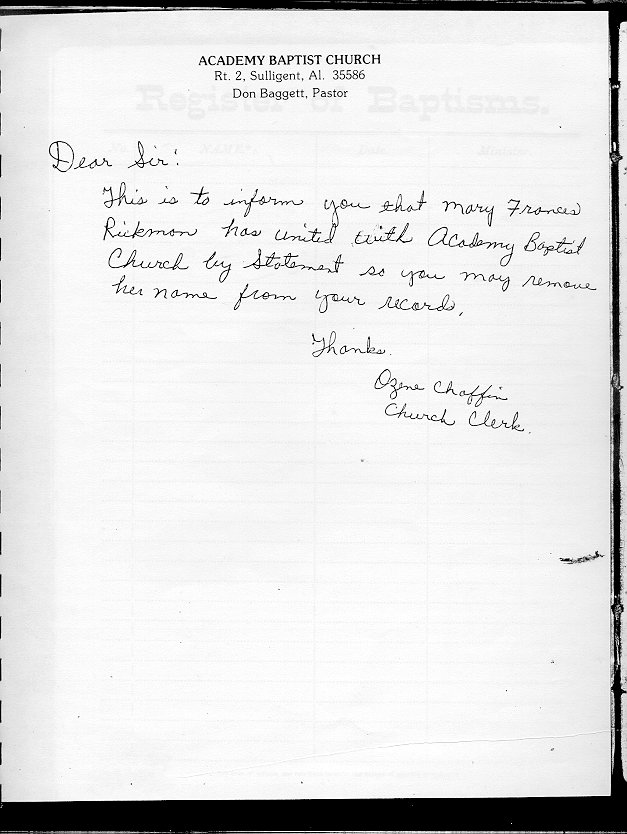 ACADEMY BAPTIST CHURCH
Rt. 2, Sulligent, Al. 35586
Don Baggett, Pastor
Register of Baptisms.
No. NAME. Date. Minister.
Dear Sir:
This is to inform you that Mary Frances
Rickman has united with Academy Baptist
Church by Statement so you may remove
her name from your records.
Thanks.
Ozene Chaffin
Church Clerk.